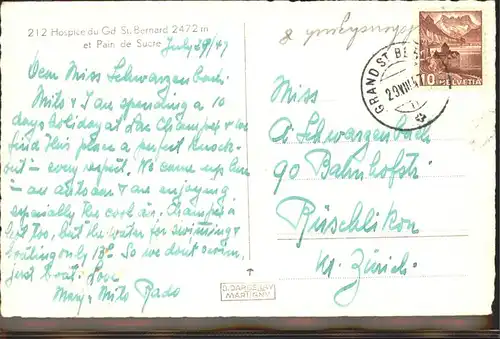 212 Hospice du Gd St. Bernard 2472 m
et Pain de Sucre
July 29/47
Dear Miss Schwarzenbach:
Mits & I am spending a 10
days holiday at Lac Champex & we
find this place a perfect
out — every respect. We came up here
— an autocar & are enjoying
especially the cool air. Champex is
hot too, but the water for swimming &
boating only 13°. So we don't swim,
just boat. Love
Mary & Mits Rado
GRAND ST. BE
29.VII.47
10 HELVETIA
Miss
A. Schwarzenbach
90 Bahnhofstr.
Rüschlikon
Kt. Zürich.
MARTIGNY